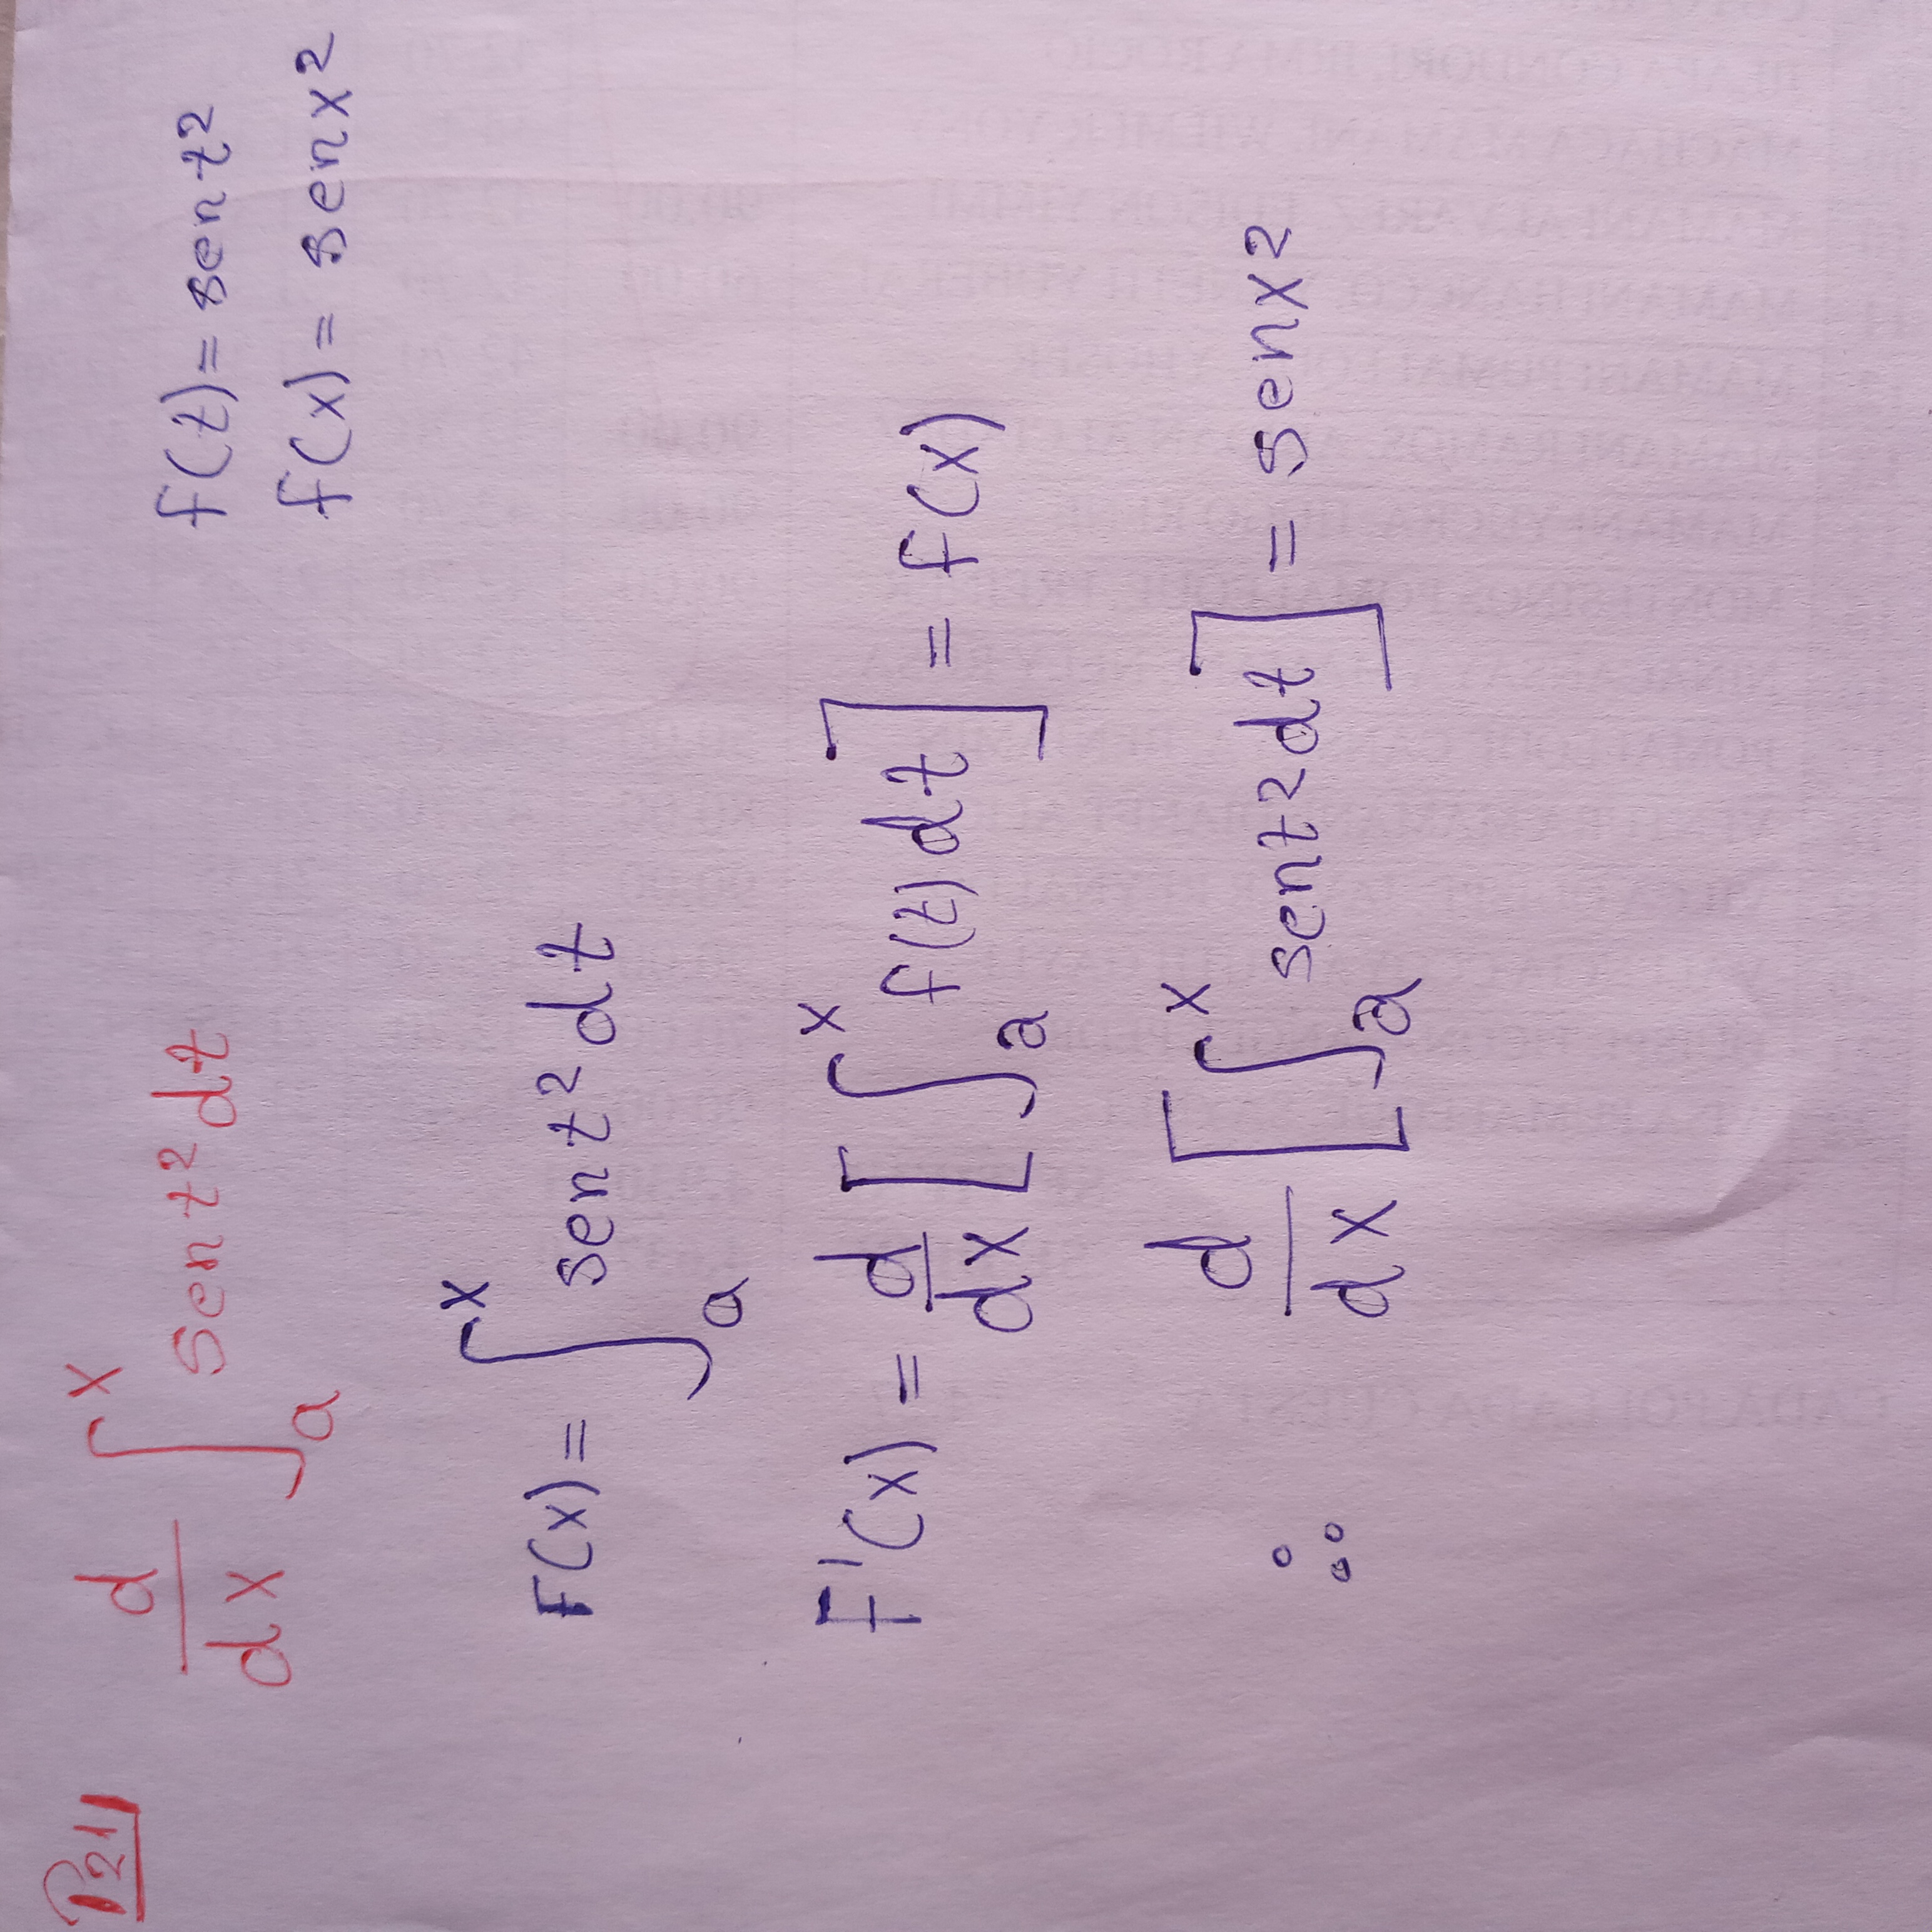 P21
d/dx ∫ₐˣ sen t² dt
f(t) = sen t²
f(x) = sen x²
F(x) = ∫ₐˣ sen t² dt
F'(x) = d/dx [∫ₐˣ f(t) dt] = f(x)
∴ d/dx [∫ₐˣ sen t² dt] = sen x²